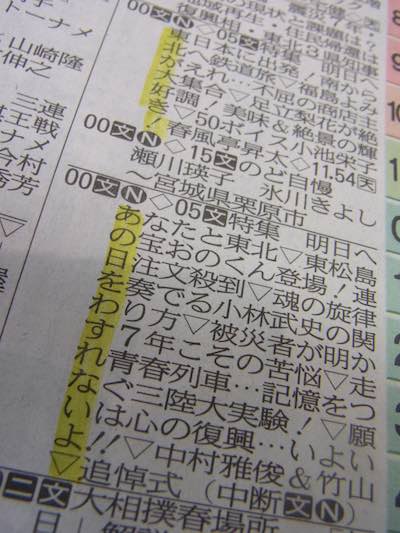 手
トーナメ
山崎隆
伸之
三連
王戦
ナメ
今村
秀芳
の現状と課題は?
域再生・住宅帰還は
復興相・東北3県知事
00文N◇05文特集 明日へ
東日本に出発!明日へ
北へ鉄道旅▽福島よみ
がえれ…不屈の商店主
大集合▽足立梨花が絶
好調!美味&絶景の輝
き!▽50ボイス小池栄子
春風亭昇太◇11.54天
00文N◇15文のど自慢
瀬川瑛子 氷川きよし
〜宮城県栗原市
00文N◇05文特集 明日へ
あなたと東北▽東松島
の宝おのくん登場!連
日注文殺到▽魂の旋律
を奏でる小林武史の関
わり方▽被災者が明か
す7年こその苦悩▽走
れ青春列車…記憶をつ
なぐ三陸大実験!▽願
いは心の復興…いよい
よ!!▽中村雅俊&竹山
▽追悼式(中断文N)
二文大相撲春場所